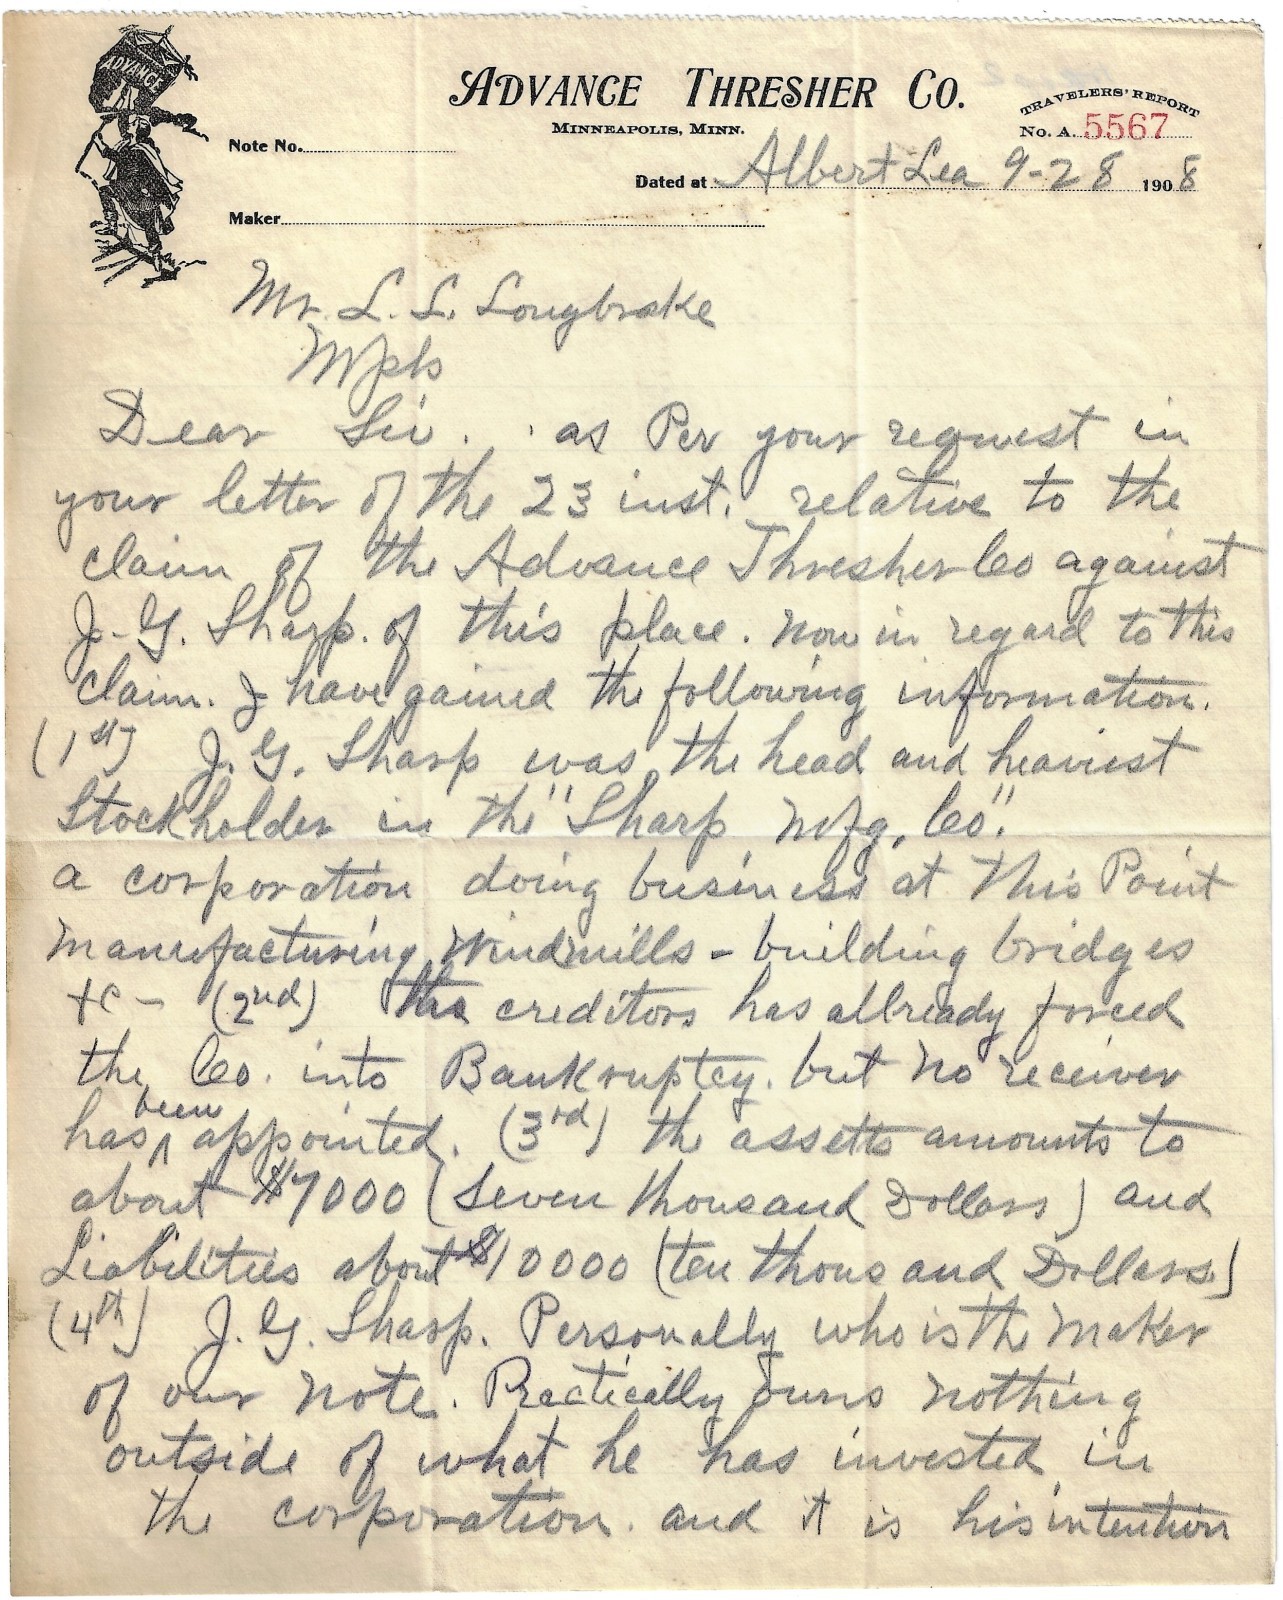 ADVANCE
ADVANCE THRESHER CO.
MINNEAPOLIS, MINN.
TRAVELERS' REPORT
No. A. 5567
Note No.
Dated at Albert Lea 9-28 1908
Maker
Mr. L. L. Longbrake
Mpls
Dear Sir. as Per your request in
your letter of the 23 inst. relative to the
claim of the Advance Thresher Co against
J. G. Sharp. of this place. Now in regard to this
claim. I have gained the following information.
(1st) J. G. Sharp was the head and heaviest
Stockholder in the "Sharp Mfg. Co".
a corporation doing business at this Point
Manufacturing Windmills - building bridges
+c - (2nd) The creditors has allready forced
the Co. into Bankruptcy. but no receiver
has been appointed. (3rd) the assetts amounts to
about $7000 (Seven thousand Dollars) and
Liabilities about $10000 (ten thousand Dollars)
(4th) J. G. Sharp. Personally who is the Maker
of our Note. Practically owns nothing
outside of what he has invested in
the corporation. and it is his intention